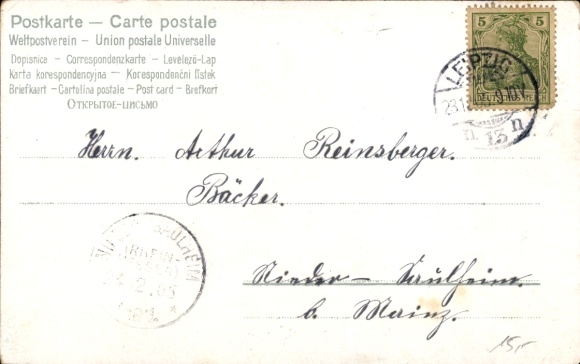 Postkarte – Carte postale
Weltpostverein – Union postale Universelle
Dopisnice – Correspondenzkarte – Levelező-Lap
Karta korespondencyjna – Korespondenční lístek
Briefkaart – Cartolina postale – Post card – Brefkort
Открытое-письмо
5 5
DEUTSCHES REICH
LEIPZIG
13
Herrn. Arthur Reinsberger.
Bäcker.
SAULHEIM
(RHEIN-
Nieder – Saulheim.
b. Mainz.
15,-